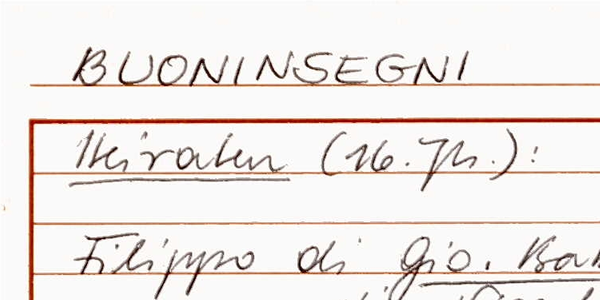 BUONINSEGNI
Heiraten (16. Jh.):
Filippo di Gio. Bat